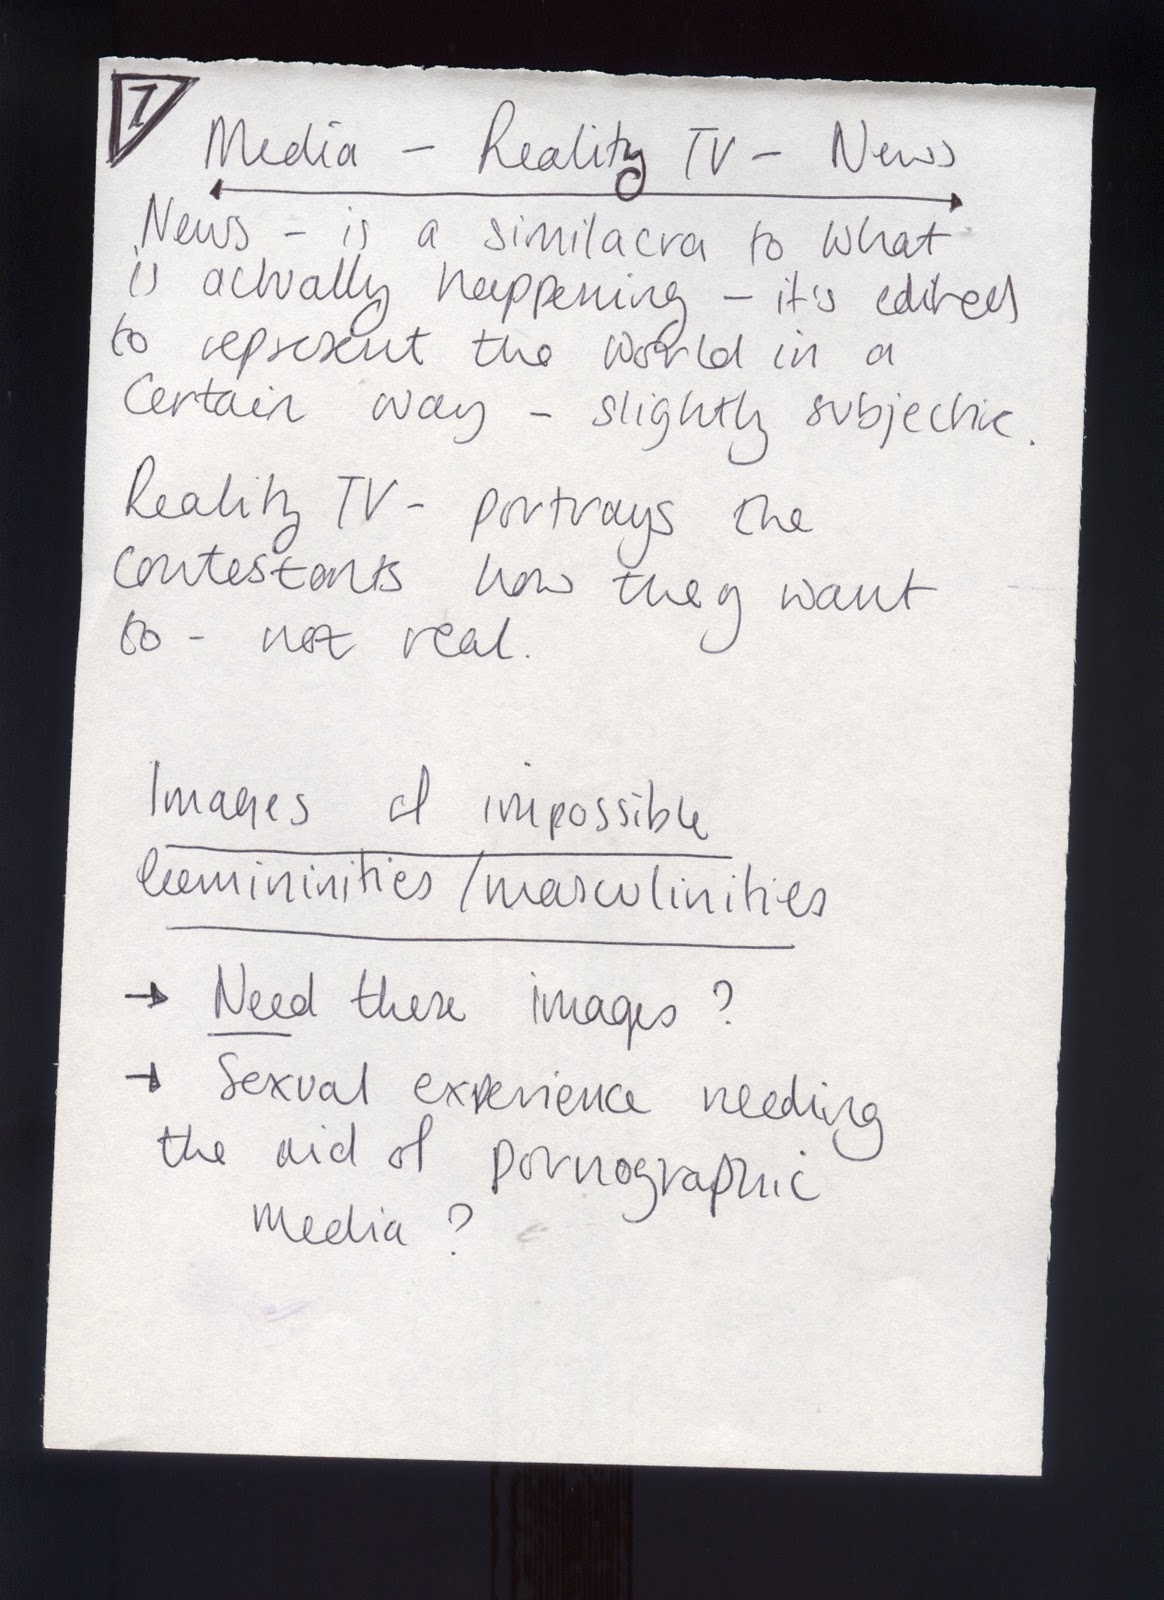 7
Media - Reality TV - News
News - is a similacra to what
is actually happening - it's edited
to represent the world in a
certain way - slightly subjective.
Reality TV - portrays the
contestants how they want
to - not real.
Images of impossible
femininities / masculinities
→ Need these images?
→ Sexual experience needing
the aid of pornographic
media?